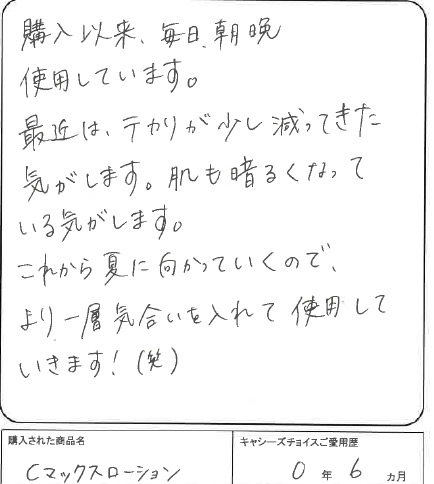 購入以来、毎日、朝晩
使用しています。
最近は、テカリが少し減ってきた
気がします。肌も暗るくなって
いる気がします。
これから夏に向かっていくので、
より一層気合いを入れて使用して
いきます!(笑)
購入された商品名
キャシーズチョイスご愛用歴
Cマックスローション
0年6ヵ月